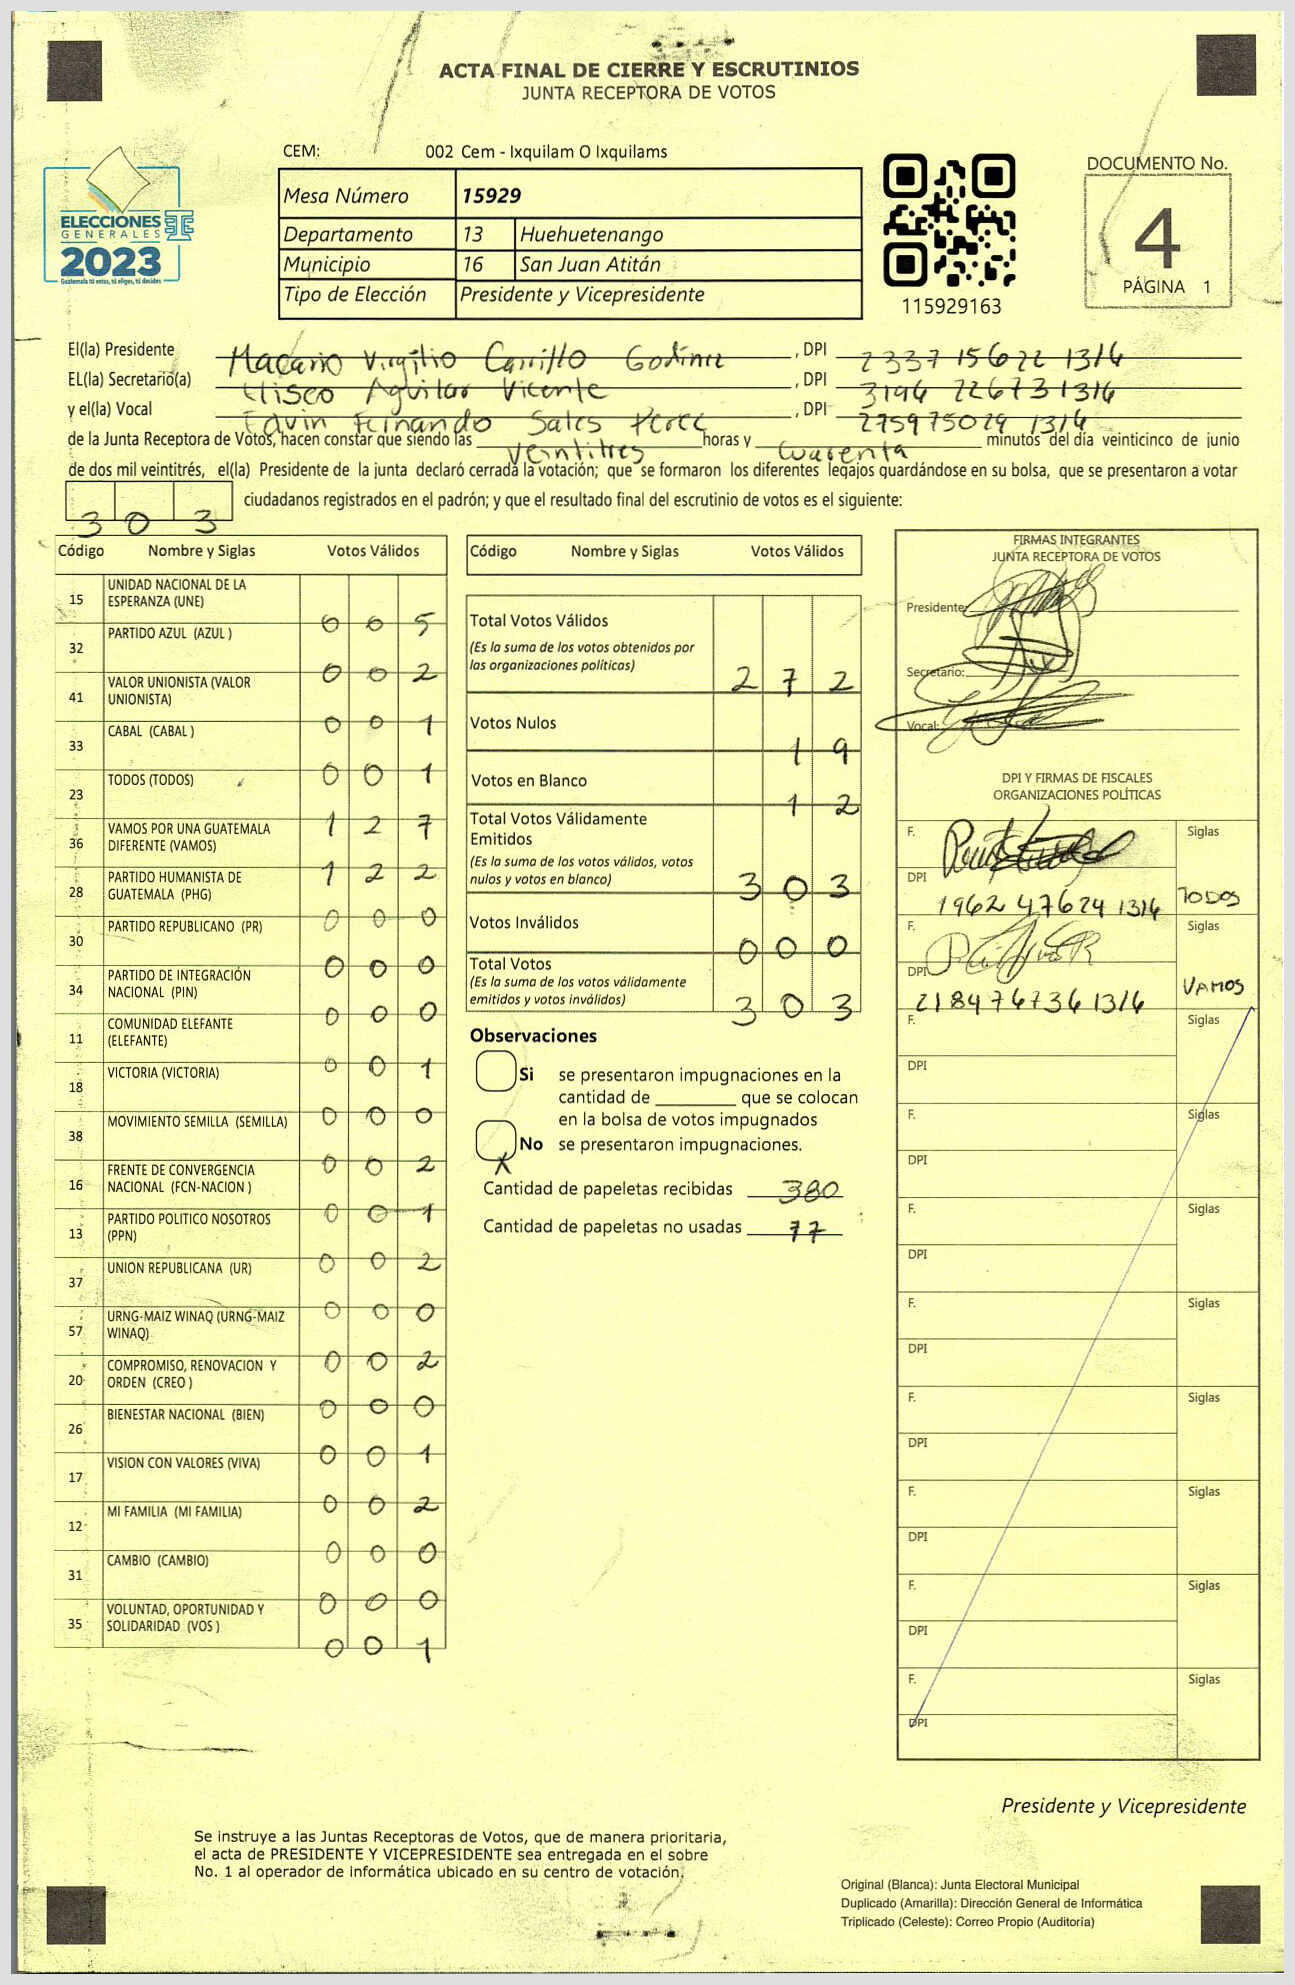 ACTA FINAL DE CIERRE Y ESCRUTINIOS
JUNTA RECEPTORA DE VOTOS
CEM: 002 Cem - Ixquilam O Ixquilams
Mesa Número 15929
Departamento 13 Huehuetenango
Municipio 16 San Juan Atitán
Tipo de Elección Presidente y Vicepresidente
ELECCIONES
GENERALES
2023
Guatemala tú votas, tú eliges, tú decides
115929163
DOCUMENTO No.
4
PÁGINA 1
El(la) Presidente Macario Virgilio Carrillo Godinez , DPI 2337 15622 1316
EL(la) Secretario(a) Eliseo Aguilar Vicente , DPI 3194 22673 1316
y el(la) Vocal Edvin Fernando Sales Perez , DPI 2759 75029 1316
de la Junta Receptora de Votos, hacen constar que siendo las veintitres horas y cuarenta minutos del día veinticinco de junio
de dos mil veintitrés, el(la) Presidente de la junta declaró cerrada la votación; que se formaron los diferentes legajos guardándose en su bolsa, que se presentaron a votar
303 ciudadanos registrados en el padrón; y que el resultado final del escrutinio de votos es el siguiente:
Código Nombre y Siglas Votos Válidos
15 UNIDAD NACIONAL DE LA ESPERANZA (UNE) 0 0 5
32 PARTIDO AZUL (AZUL ) 0 0 2
41 VALOR UNIONISTA (VALOR UNIONISTA) 0 0 1
33 CABAL (CABAL ) 0 0 1
23 TODOS (TODOS) 1 2 7
36 VAMOS POR UNA GUATEMALA DIFERENTE (VAMOS) 1 2 2
28 PARTIDO HUMANISTA DE GUATEMALA (PHG) 0 0 0
30 PARTIDO REPUBLICANO (PR) 0 0 0
34 PARTIDO DE INTEGRACIÓN NACIONAL (PIN) 0 0 0
11 COMUNIDAD ELEFANTE (ELEFANTE) 0 0 1
18 VICTORIA (VICTORIA) 0 0 0
38 MOVIMIENTO SEMILLA (SEMILLA) 0 0 2
16 FRENTE DE CONVERGENCIA NACIONAL (FCN-NACION ) 0 0 1
13 PARTIDO POLITICO NOSOTROS (PPN) 0 0 2
37 UNION REPUBLICANA (UR) 0 0 0
57 URNG-MAIZ WINAQ (URNG-MAIZ WINAQ) 0 0 2
20 COMPROMISO, RENOVACION Y ORDEN (CREO ) 0 0 0
26 BIENESTAR NACIONAL (BIEN) 0 0 1
17 VISION CON VALORES (VIVA) 0 0 2
12 MI FAMILIA (MI FAMILIA) 0 0 0
31 CAMBIO (CAMBIO) 0 0 0
35 VOLUNTAD, OPORTUNIDAD Y SOLIDARIDAD (VOS ) 0 0 1
Código Nombre y Siglas Votos Válidos
Total Votos Válidos
(Es la suma de los votos obtenidos por
las organizaciones políticas) 2 7 2
Votos Nulos 1 9
Votos en Blanco 1 2
Total Votos Válidamente
Emitidos
(Es la suma de los votos válidos, votos
nulos y votos en blanco) 3 0 3
Votos Inválidos 0 0 0
Total Votos
(Es la suma de los votos válidamente
emitidos y votos inválidos) 3 0 3
Observaciones
Si se presentaron impugnaciones en la
cantidad de ________ que se colocan
en la bolsa de votos impugnados
No se presentaron impugnaciones.
X
Cantidad de papeletas recibidas 380
Cantidad de papeletas no usadas 77
FIRMAS INTEGRANTES
JUNTA RECEPTORA DE VOTOS
Presidente:
Secretario:
Vocal:
DPI Y FIRMAS DE FISCALES
ORGANIZACIONES POLÍTICAS
F. Siglas
DPI 1962 47624 1316 TODOS
F. Siglas
DPI 2184 76736 1316 VAMOS
F. Siglas
DPI
F. Siglas
DPI
F. Siglas
DPI
F. Siglas
DPI
F. Siglas
DPI
F. Siglas
DPI
F. Siglas
DPI
F. Siglas
DPI
Presidente y Vicepresidente
Se instruye a las Juntas Receptoras de Votos, que de manera prioritaria,
el acta de PRESIDENTE Y VICEPRESIDENTE sea entregada en el sobre
No. 1 al operador de informática ubicado en su centro de votación.
Original (Blanca): Junta Electoral Municipal
Duplicado (Amarilla): Dirección General de Informática
Triplicado (Celeste): Correo Propio (Auditoría)